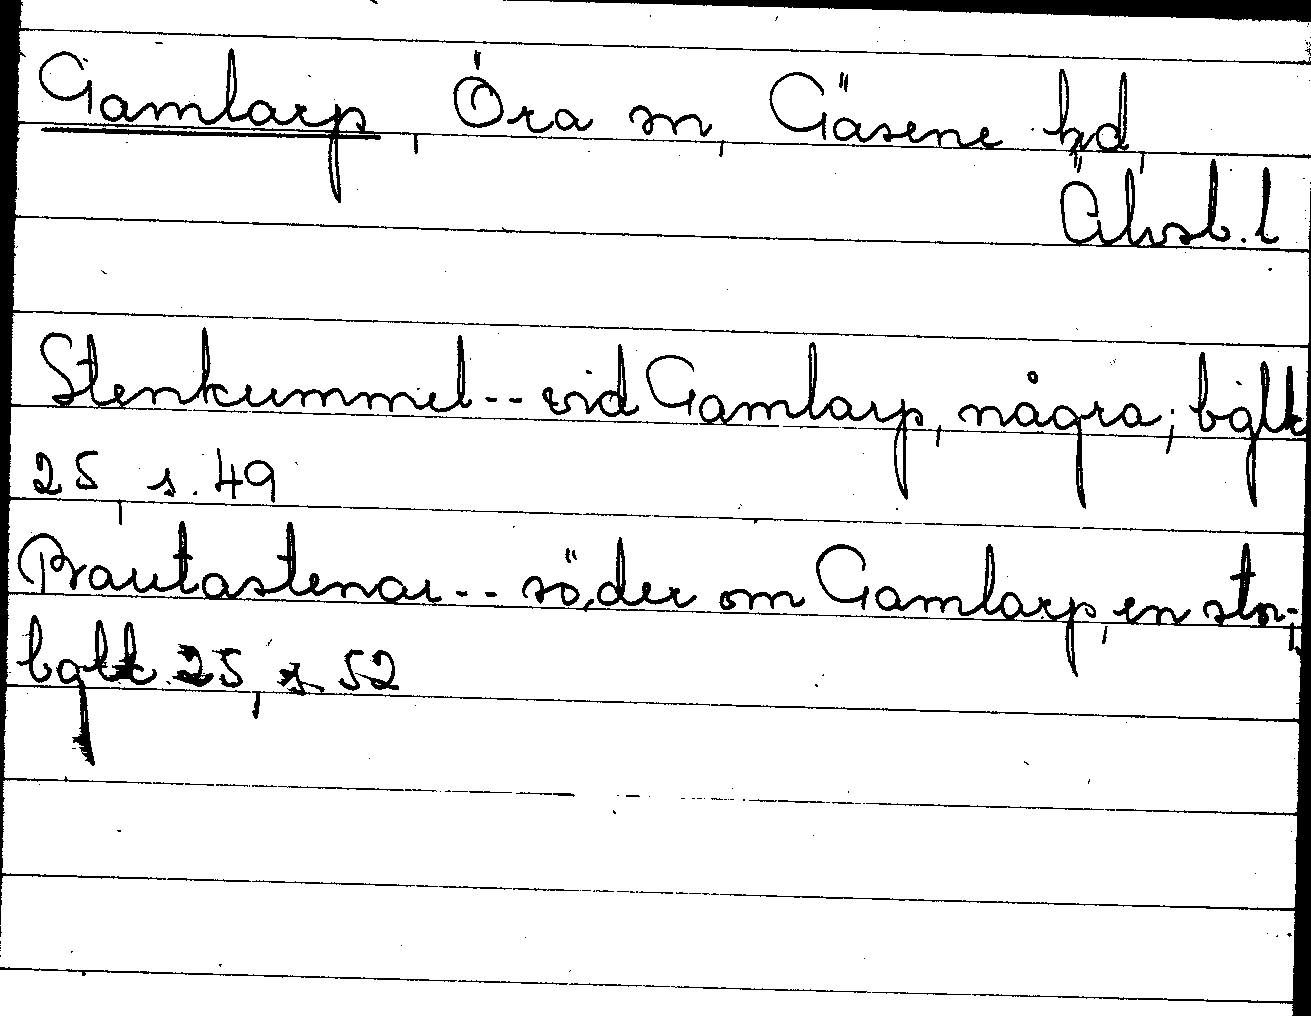 Gamlarp, Öra sn, Gäsene hd,
Älvsb. l
Stenkummel -- vid Gamlarp, några; bglk
25, s. 49
Brautastenar -- söder om Gamlarp, en stor;
bglk 25, s. 52